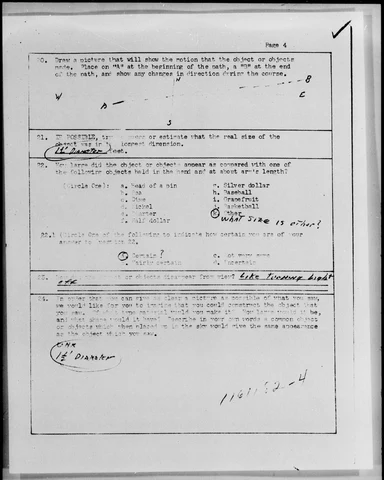 Page 4
20. Draw a picture that will show the motion that the object or objects
made. Place an "A" at the beginning of the path, a "B" at the end
of the path, and show any changes in direction during the course.
N
W
A
B
E
S
21. IF POSSIBLE, try to guess or estimate what the real size of the
object was in its longest dimension.
1½' Diameter feet.
22. How large did the object or objects appear as compared with one of
the following objects held in the hand and at about arm's length?
(Circle One):
a. Head of a pin
b. Pea
c. Dime
d. Nickel
e. Quarter
f. Half dollar
g. Silver dollar
h. Baseball
i. Grapefruit
j. Basketball
k. Other
WHAT SIZE IS OTHER?
22.1 Circle One of the following to indicate how certain you are of your
answer to question 22.
a. Certain ?
b. Fairly certain
c. Not very sure
d. Uncertain
23. How did the object or objects disappear from view? Like Turning Light
off
24. In order that you can give as clear a picture as possible of what you saw,
we would like for you to imagine that you could construct the object that
you saw. Of what type material would you make it? How large would it be,
and what shape would it have? Describe in your own words a common object
or objects which when placed up in the sky would give the same appearance
as the object which you saw.
1½' Diameter